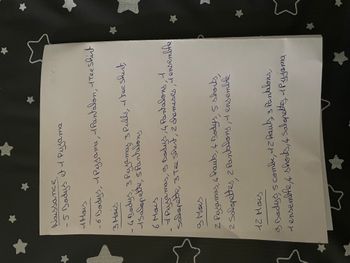 Naissance
- 5 Bodys et 1 Pyjama
1 Mois
- 6 Bodys, 1 Pyjama, 1 Pantalon, 1 Tee Shirt
3 Mois
- 4 Bodys, 3 Pyjamas, 3 Pulls, 1 Tee Shirt
1 Salopette, 5 Pantalons
6 Mois
- 7 Pyjamas, 9 Bodys, 4 Pantalons, 1
Salopette, 3 Tee Shirt, 2 chemises, 1 ensemble
9 Mois
2 Pyjamas, 4 hauts, 6 Bodys, 5 shorts,
2 Salopettes, 2 Pantalons, 1 ensemble
12 Mois
9 Bodys, 5 combis, 12 hauts, 3 Pantalons,
1 ensemble, 4 shorts, 4 Salopettes, 1 Pyjama